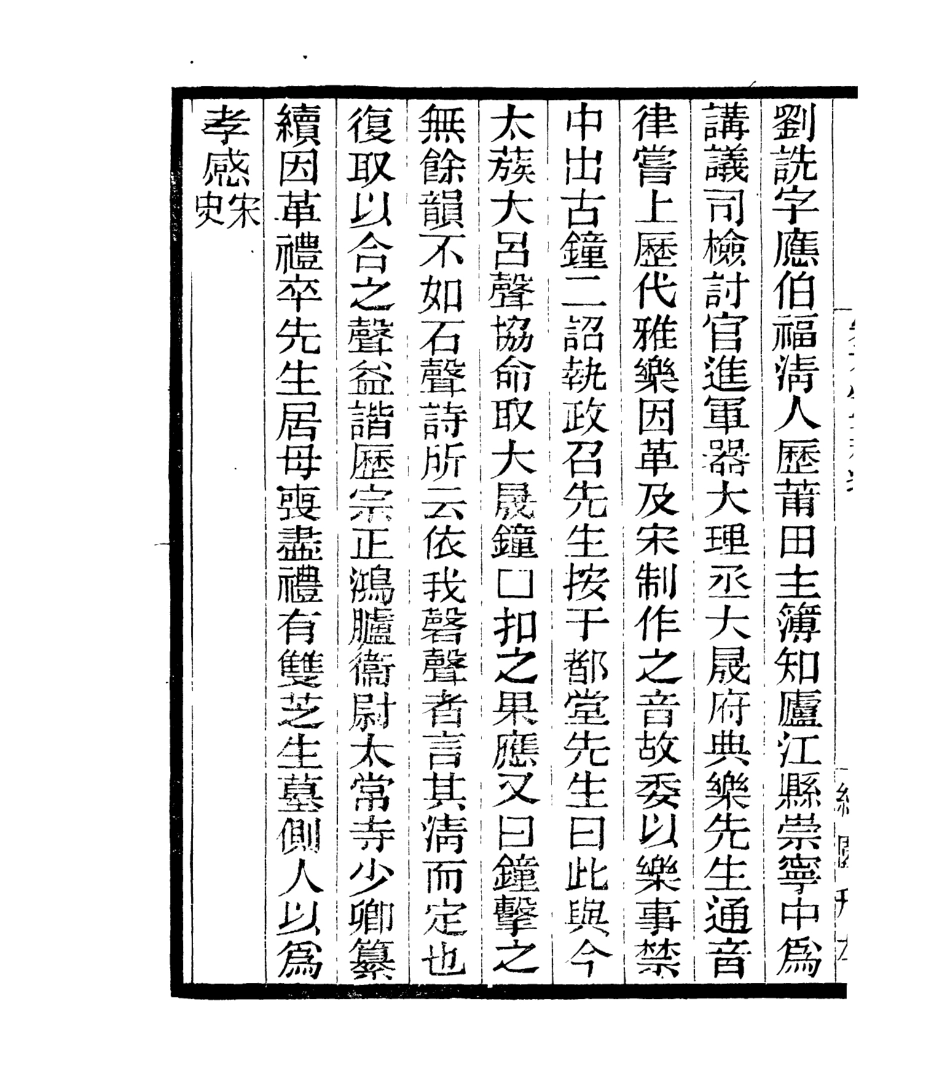 劉詵字應伯福淸人歷莆田主簿知廬江縣崇寧中爲
講議司檢討官進軍器大理丞大晟府典樂先生通音
律嘗上歷代雅樂因革及宋制作之音故委以樂事禁
中出古鐘二詔執政召先生按于都堂先生曰此與今
太蔟大呂聲協命取大晟鐘口扣之果應又曰鐘擊之
無餘韻不如石聲詩所云依我磬聲者言其淸而定也
復取以合之聲益諧歷宗正鴻臚衞尉太常寺少卿纂
續因革禮卒先生居母喪盡禮有雙芝生墓側人以爲
孝感宋史